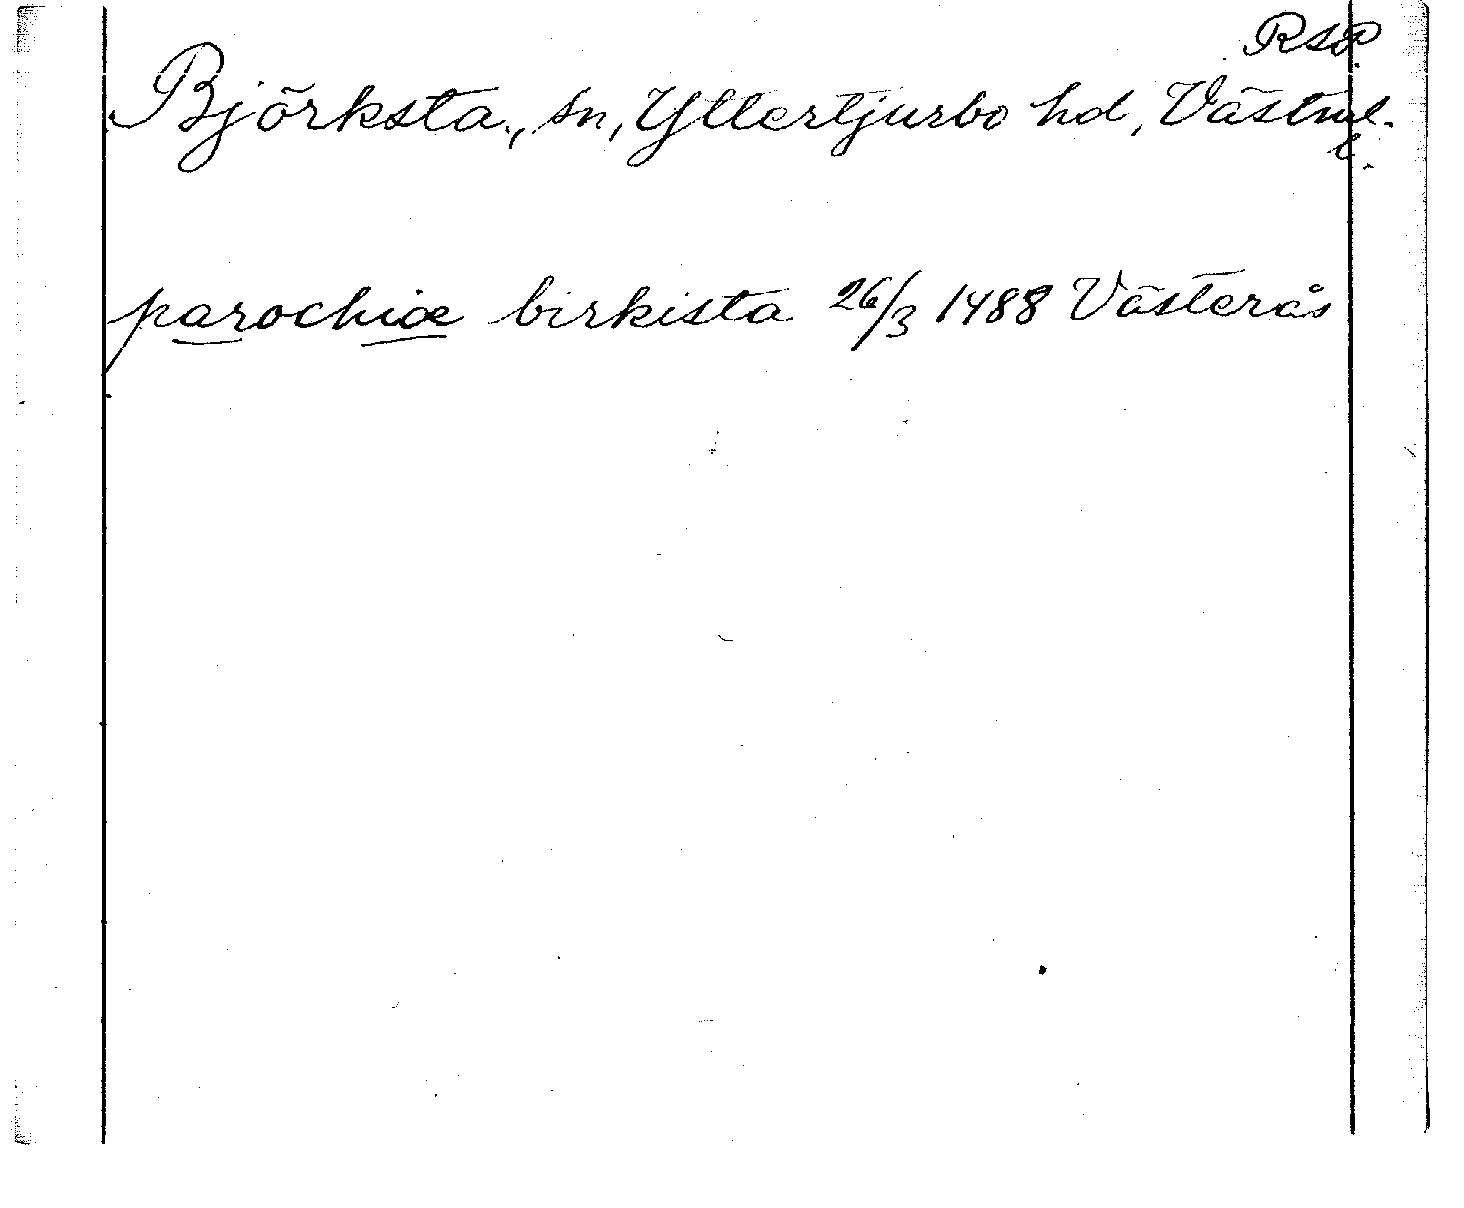 RSP
Björksta, sn, Yttertjurbo hd, Västml.
l.
parochiæ birkista 26/3 1488 Västerås